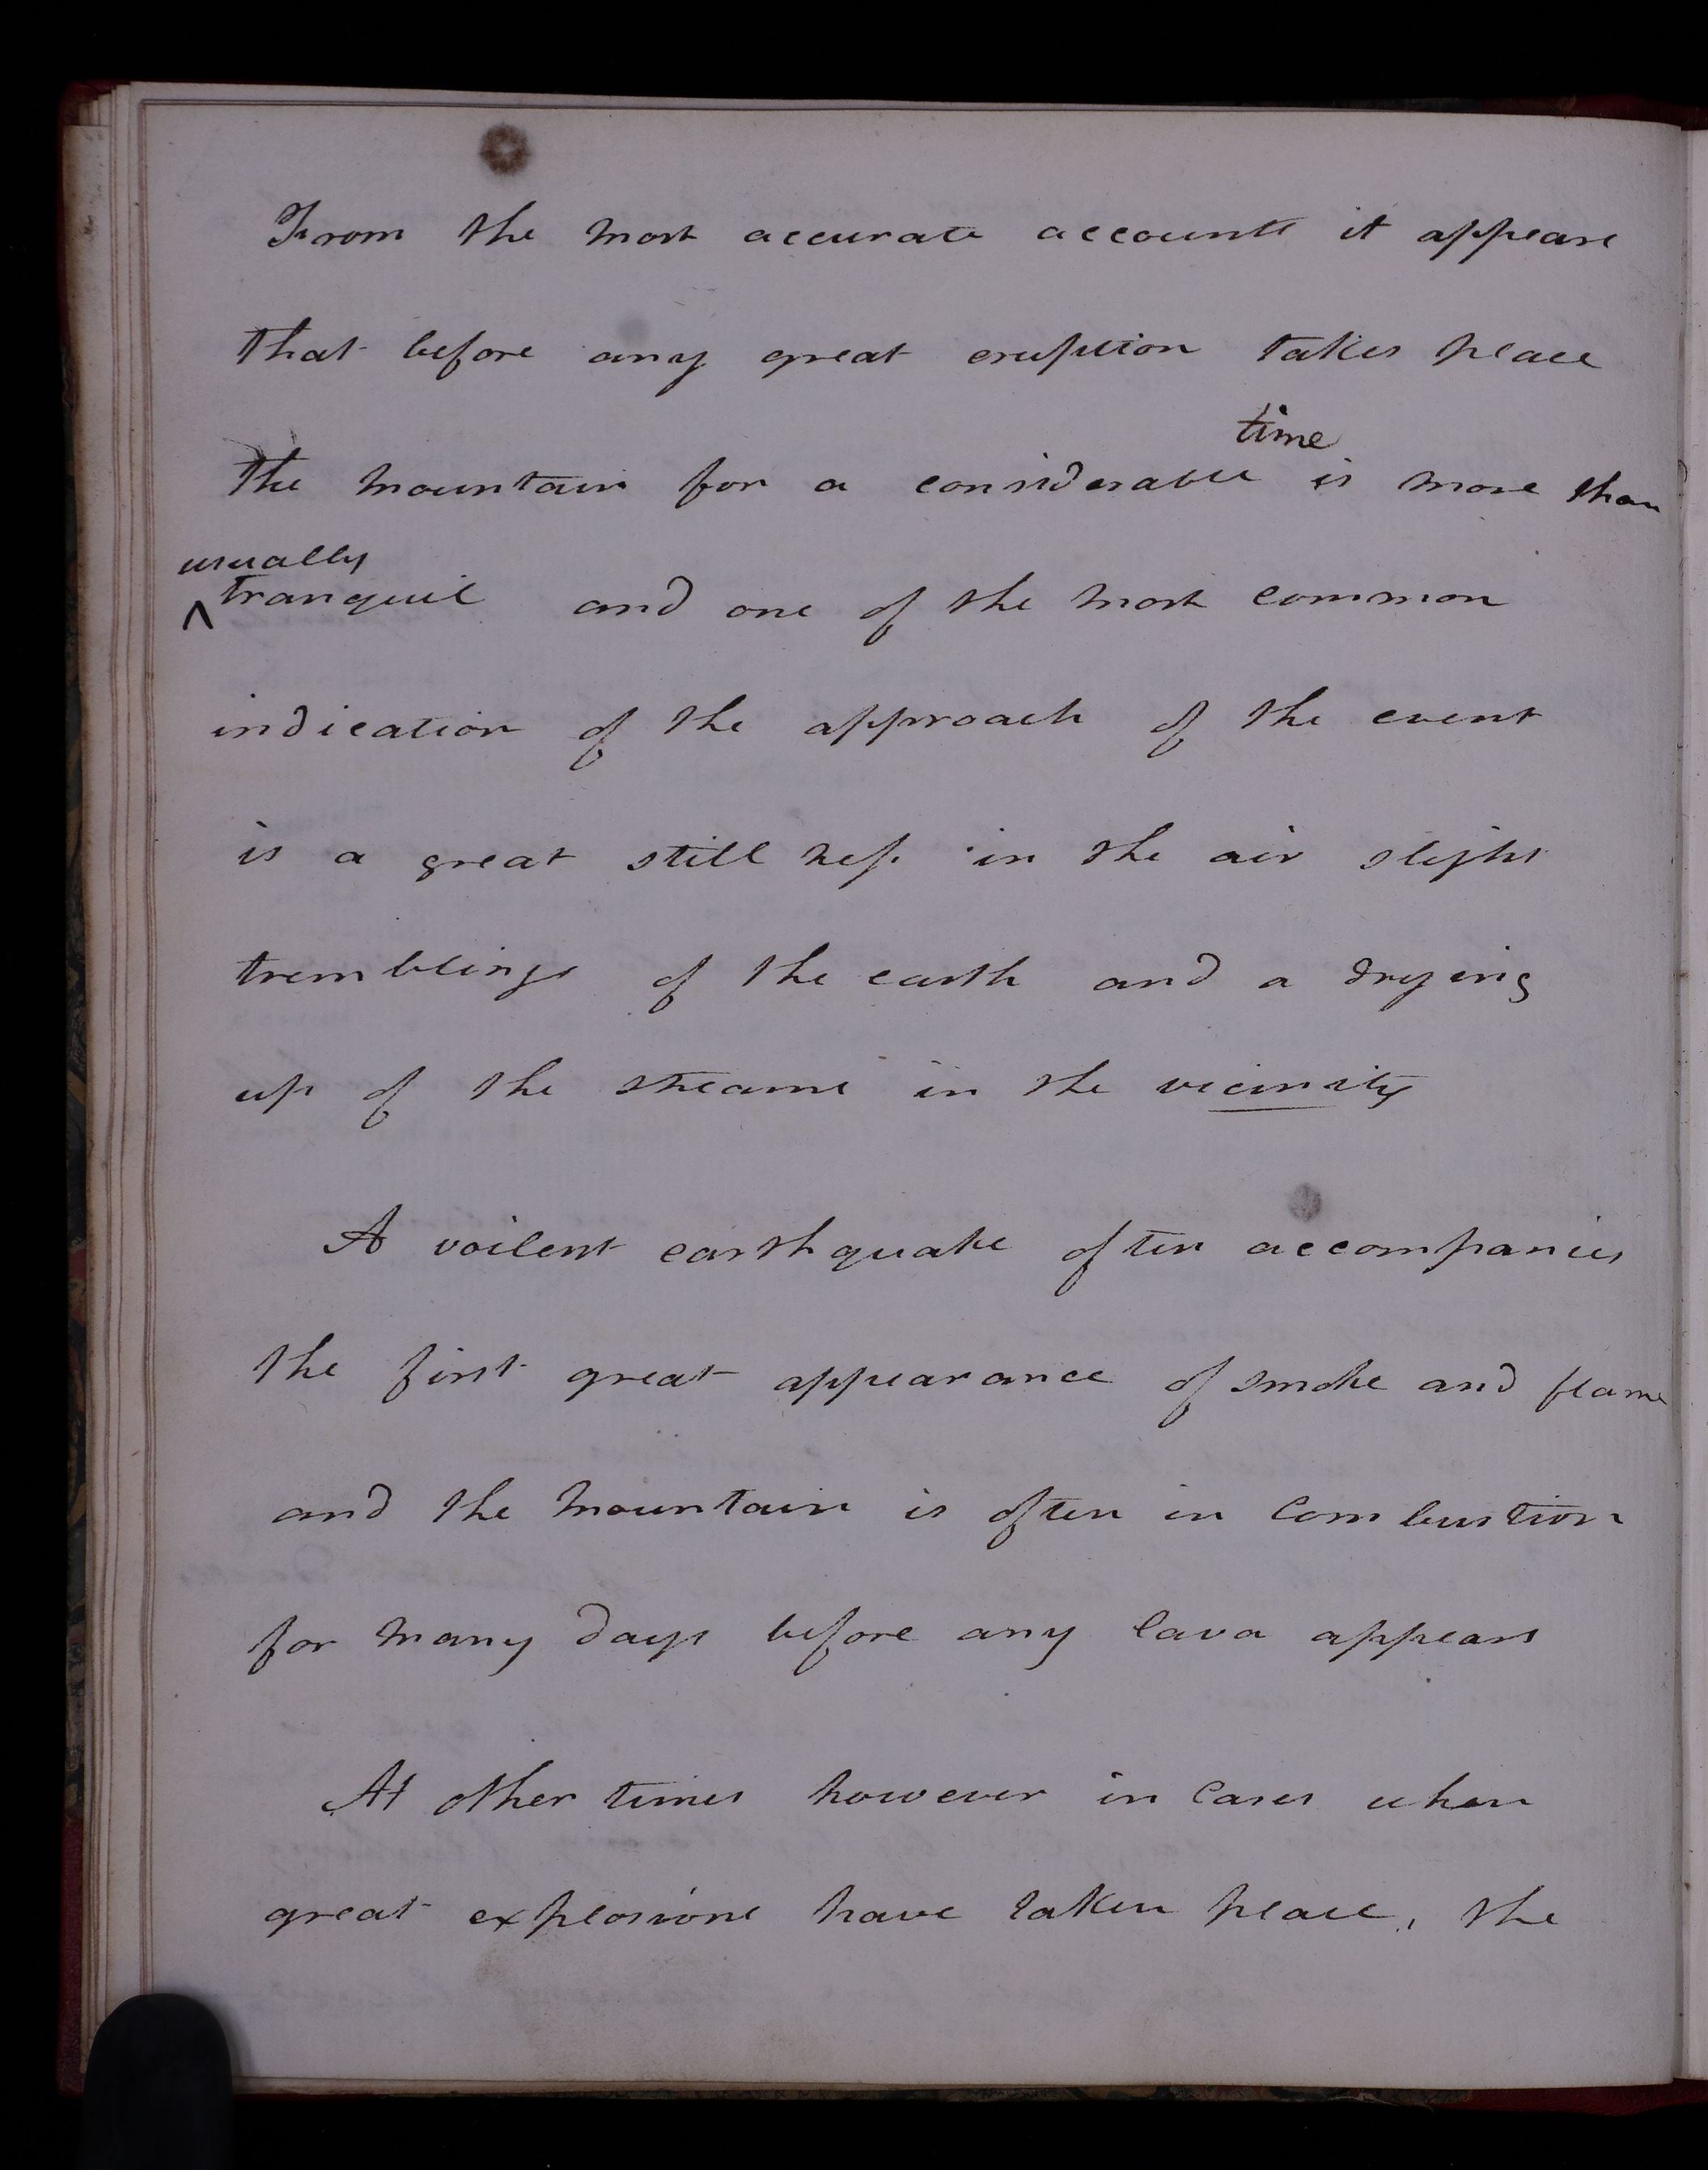 From the most accurate accounts it appears
that before any great eruption takes place
time
the mountain for a considerable is more than
usually
^ tranquil and one of the most common
indication of the approach of the event
is a great still nefs in the air slight
tremblings of the earth and a drying
up of the streams in the vicinity
A voilent earthquake often accompanies
the first great appearance of smoke and flame
and the mountain is often in Combustion
for many days before any lava appears
At other times however in Cases when
great explosions have taken place, the